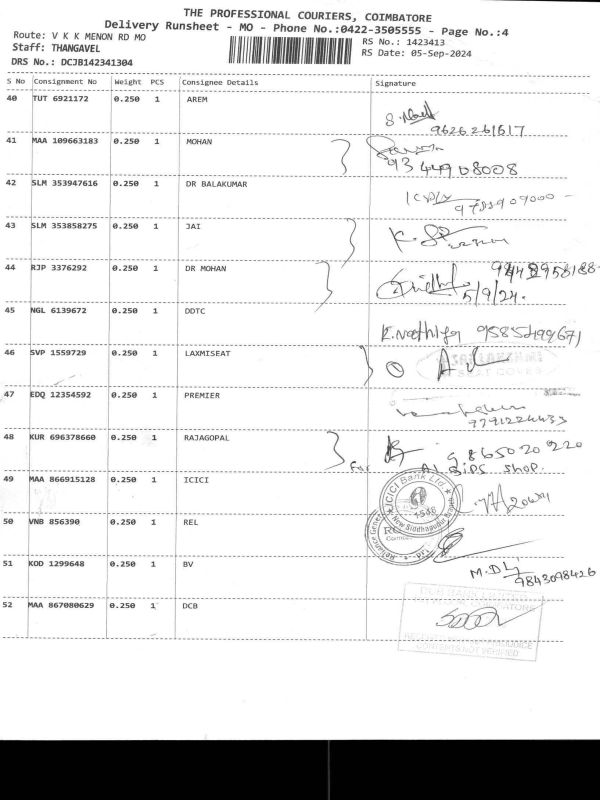 THE PROFESSIONAL COURIERS, COIMBATORE
Delivery Runsheet - MO - Phone No.:0422-3505555 - Page No.:4
Route: V K K MENON RD MO
RS No.: 1423413
Staff: THANGAVEL
RS Date: 05-Sep-2024
DRS No.: DCJB142341304
S No Consignment No Weight PCS Consignee Details Signature
40 TUT 6921172 0.250 1 AREM
9626261617
41 MAA 109663183 0.250 1 MOHAN
9344908008
42 SLM 353947616 0.250 1 DR BALAKUMAR
43 SLM 353858275 0.250 1 JAI
44 RJP 3376292 0.250 1 DR MOHAN
5/9/24.
45 NGL 6139672 0.250 1 DDTC
9585499671
46 SVP 1559729 0.250 1 LAXMISEAT
47 EDQ 12354592 0.250 1 PREMIER
9791224433
48 KUR 696378660 0.250 1 RAJAGOPAL
9865020220
shop.
49 MAA 866915128 0.250 1 ICICI
ICICI Bank Ltd.
1548
New Siddhapudur Branch
50 VNB 856390 0.250 1 REL
51 KOD 1299648 0.250 1 BV
M.D
9843098426
52 MAA 867080629 0.250 1 DCB
CONTENTS NOT VERIFIED